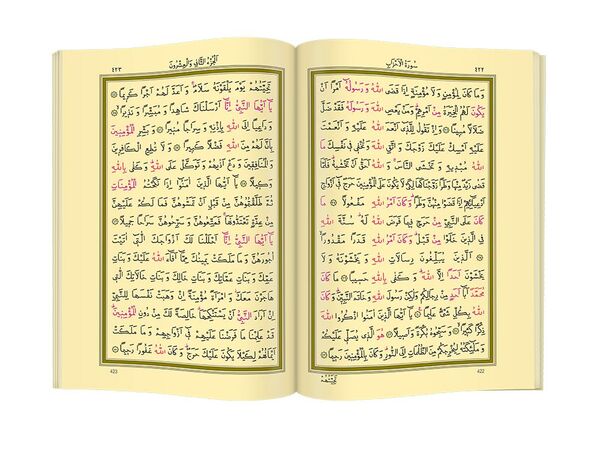 سُورَةُ الْاَحْزَابِ
٤٢٢
وَمَا كَانَ لِمُؤْمِنٍ وَلَا مُؤْمِنَةٍ اِذَا قَضَى اللّٰهُ وَرَسُولُهُٓ اَمْرًا اَنْ
يَكُونَ لَهُمُ الْخِيَرَةُ مِنْ اَمْرِهِمْ وَمَنْ يَعْصِ اللّٰهَ وَرَسُولَهُ فَقَدْ ضَلَّ
ضَلَالًا مُبِينًا وَاِذْ تَقُولُ لِلَّذِٓي اَنْعَمَ اللّٰهُ عَلَيْهِ وَاَنْعَمْتَ
عَلَيْهِ اَمْسِكْ عَلَيْكَ زَوْجَكَ وَاتَّقِ اللّٰهَ وَتُخْفِي فِي نَفْسِكَ مَا
اللّٰهُ مُبْدِيهِ وَتَخْشَى النَّاسَ وَاللّٰهُ اَحَقُّ اَنْ تَخْشٰيهُ فَلَمَّا
قَضٰى زَيْدٌ مِنْهَا وَطَرًا زَوَّجْنَاكَهَا لِكَيْ لَا يَكُونَ عَلَى الْمُؤْمِنِينَ حَرَجٌ فِٓي اَزْوَاجِ
اَدْعِيَٓائِهِمْ اِذَا قَضَوْا مِنْهُنَّ وَطَرًا وَكَانَ اَمْرُ اللّٰهِ مَفْعُولًا مَا
كَانَ عَلَى النَّبِيِّ مِنْ حَرَجٍ فِيمَا فَرَضَ اللّٰهُ لَهُ سُنَّةَ اللّٰهِ
فِي الَّذِينَ خَلَوْا مِنْ قَبْلُ وَكَانَ اَمْرُ اللّٰهِ قَدَرًا مَقْدُورًا
الَّذِينَ يُبَلِّغُونَ رِسَالَاتِ اللّٰهِ وَيَخْشَوْنَهُ وَلَا
يَخْشَوْنَ اَحَدًا اِلَّا اللّٰهَ وَكَفٰى بِاللّٰهِ حَسِيبًا مَا كَانَ
مُحَمَّدٌ اَبَٓا اَحَدٍ مِنْ رِجَالِكُمْ وَلٰكِنْ رَسُولَ اللّٰهِ وَخَاتَمَ النَّبِيّنَ وَكَانَ
اللّٰهُ بِكُلِّ شَيْءٍ عَلِيمًا يَٓا اَيُّهَا الَّذِينَ اٰمَنُوا اذْكُرُوا اللّٰهَ
ذِكْرًا كَثِيرًا وَسَبِّحُوهُ بُكْرَةً وَاَصِيلًا هُوَ الَّذِي يُصَلِّي عَلَيْكُمْ
وَمَلٰٓئِكَتُهُ لِيُخْرِجَكُمْ مِنَ الظُّلُمَاتِ اِلَى النُّورِ وَكَانَ بِالْمُؤْمِنِينَ رَحِيمًا
تَحِيَّتُهُمْ
422
اَلْجُزْءُ الثَّانِي وَالْعِشْرُونَ
٤٢٣
تَحِيَّتُهُمْ يَوْمَ يَلْقَوْنَهُ سَلَامٌ وَاَعَدَّ لَهُمْ اَجْرًا كَرِيمًا
يَٓا اَيُّهَا النَّبِيُّ اِنَّٓا اَرْسَلْنَاكَ شَاهِدًا وَمُبَشِّرًا وَنَذِيرًا
وَدَاعِيًا اِلَى اللّٰهِ بِاِذْنِهِ وَسِرَاجًا مُنِيرًا وَبَشِّرِ الْمُؤْمِنِينَ
بِاَنَّ لَهُمْ مِنَ اللّٰهِ فَضْلًا كَبِيرًا وَلَا تُطِعِ الْكَافِرِينَ
وَالْمُنَافِقِينَ وَدَعْ اَذٰيهُمْ وَتَوَكَّلْ عَلَى اللّٰهِ وَكَفٰى بِاللّٰهِ
وَكِيلًا يَٓا اَيُّهَا الَّذِينَ اٰمَنُٓوا اِذَا نَكَحْتُمُ الْمُؤْمِنَاتِ
ثُمَّ طَلَّقْتُمُوهُنَّ مِنْ قَبْلِ اَنْ تَمَسُّوهُنَّ فَمَا لَكُمْ عَلَيْهِنَّ
مِنْ عِدَّةٍ تَعْتَدُّونَهَا فَمَتِّعُوهُنَّ وَسَرِّحُوهُنَّ سَرَاحًا جَمِيلًا
يَٓا اَيُّهَا النَّبِيُّ اِنَّٓا اَحْلَلْنَا لَكَ اَزْوَاجَكَ الّٰتِٓي اٰتَيْتَ
اُجُورَهُنَّ وَمَا مَلَكَتْ يَمِينُكَ مِمَّٓا اَفَٓاءَ اللّٰهُ عَلَيْكَ وَبَنَاتِ
عَمِّكَ وَبَنَاتِ عَمَّاتِكَ وَبَنَاتِ خَالِكَ وَبَنَاتِ خَالَاتِكَ الّٰتِي
هَاجَرْنَ مَعَكَ وَامْرَاَةً مُؤْمِنَةً اِنْ وَهَبَتْ نَفْسَهَا لِلنَّبِيِّ
اِنْ اَرَادَ النَّبِيُّ اَنْ يَسْتَنْكِحَهَا خَالِصَةً لَكَ مِنْ دُونِ الْمُؤْمِنِينَ
قَدْ عَلِمْنَا مَا فَرَضْنَا عَلَيْهِمْ فِٓي اَزْوَاجِهِمْ وَمَا مَلَكَتْ
اَيْمَانُهُمْ لِكَيْلَا يَكُونَ عَلَيْكَ حَرَجٌ وَكَانَ اللّٰهُ غَفُورًا رَحِيمًا
423